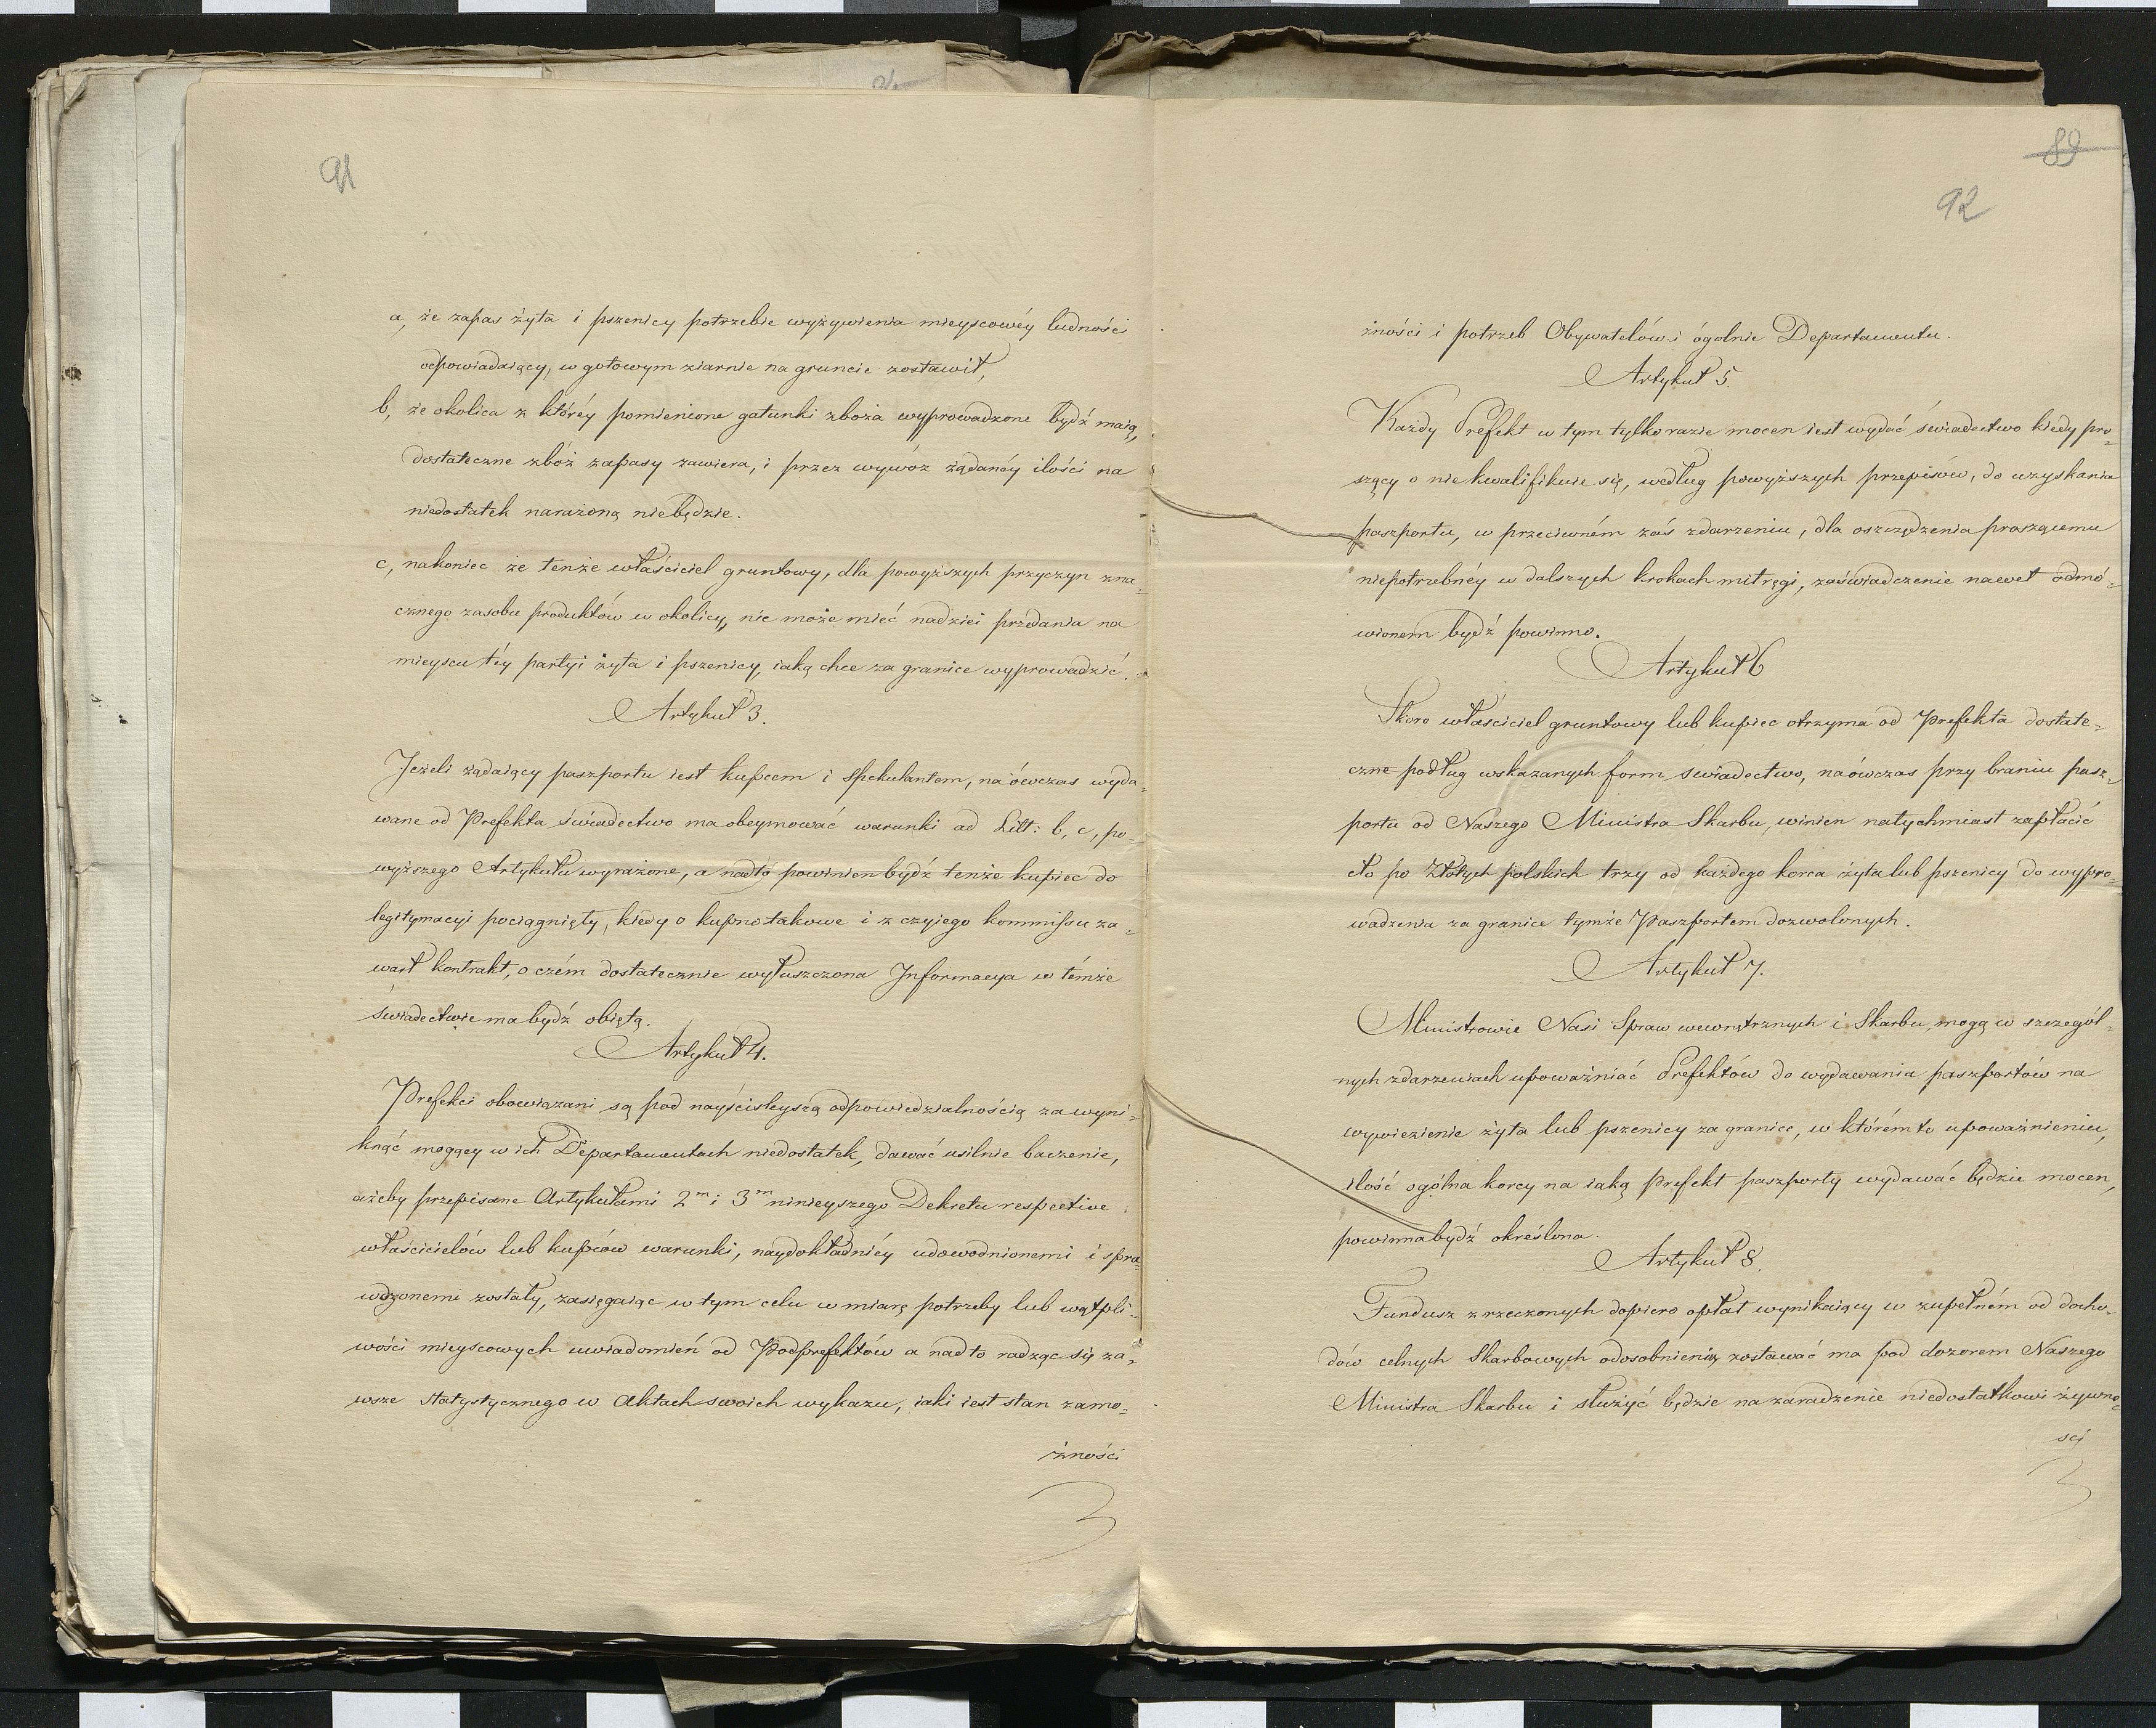 91
a, że zapas żyta i pszenicy potrzebie wyżywienia mieyscowéy ludności
odpowiadaiący, w gotowym ziarnie na gruncie zostawił,
b, że okolica z któréy pomienione gatunki zboża wyprowadzone bydź maią,
dostateczne zbóż zapasy zawiera, i przez wywóz żądanéy ilości na
niedostatek narażoną niebędzie.
c, nakoniec że tenże właściciel gruntowy, dla powyższych przyczyn zna-
cznego zasobu produktów w okolicy, nie może mieć nadziei przedania na
mieyscu téy partyi żyta i pszenicy, iaką chce za granice wyprowadzić.
Artykuł 3.
Jeżeli żądaiący paszportu iest kupcem i spekulantem, naówczas wyda-
wane od Prefekta świadectwo ma obeymować warunki ad Litt: b, c, po-
wyższego Artykułu wyrażone, a nadto powinien bydź tenże kupiec do
legitymacyi pociągnięty, kiedy o kupno takowe i z czyiego kommissu za-
warł kontrakt, o czém dostatecznie wyłuszczona Informacya w témże
świadectwie ma bydź obiętą.
Artykuł 4.
Prefekci obowiązani są pod nayściśleyszą odpowiedzialnością za wyni-
knąć mogący w ich Departamentach niedostatek, dawać usilnie baczenie,
ażeby przepisane Artykułami 2m i 3m ninieyszego Dekretu respective
właścicielów lub kupców warunki, naydokładniéy udowodnionemi i spra-
wdzonemi zostały, zasięgaiąc w tym celu w miarę potrzeby lub wątpli-
wości mieyscowych uwiadomień od Podprefektów a nadto radząc się za-
wsze statystycznego w Aktach swoich wykazu, iaki iest stan zamo-
żności
89
92
żności i potrzeb Obywatelów i ogólnie Departamentu.
Artykuł 5.
Każdy Prefekt w tym tylko razie mocen iest wydać świadectwo kiedy pro-
szący o nie kwalifikuie się, według powyższych przepisów, do uzyskania
paszportu, w przeciwném zaś zdarzeniu, dla oszczędzenia proszącemu
niepotrzebnéy w dalszych krokach mitręgi, zaświadczenie nawet odmó-
wionem bydź powinno.
Artykuł 6
Skoro właściciel gruntowy lub kupiec otrzyma od Prefekta dostate-
czne podług wskazanych form świadectwo, naówczas przy braniu pasz-
portu od Naszego Ministra Skarbu, winien natychmiast zapłacić
cło po Złotych polskich trzy od każdego korca żyta lub pszenicy do wypro-
wadzenia za granice tymże Paszportem dozwolonych.
Artykuł 7.
Ministrowie Nasi Spraw wewnętrznych i Skarbu, mogą w szczegól-
nych zdarzeniach upoważniać Prefektów do wydawania paszportów na
wywiezienie żyta lub pszenicy za granice, w którémto upoważnieniu,
ilość ogólna korcy na iaką Prefekt paszporty wydawać będzie mocen,
powinna bydź określona.
Artykuł 8.
Fundusz z rzeczonych dopiero opłat wynikaiący w zupełném od docho-
dów celnych Skarbowych odosobnieniu zostawać ma pod dozorem Naszego
Ministra Skarbu i służyć będzie na zaradzenie niedostatkowi żywno-
ści